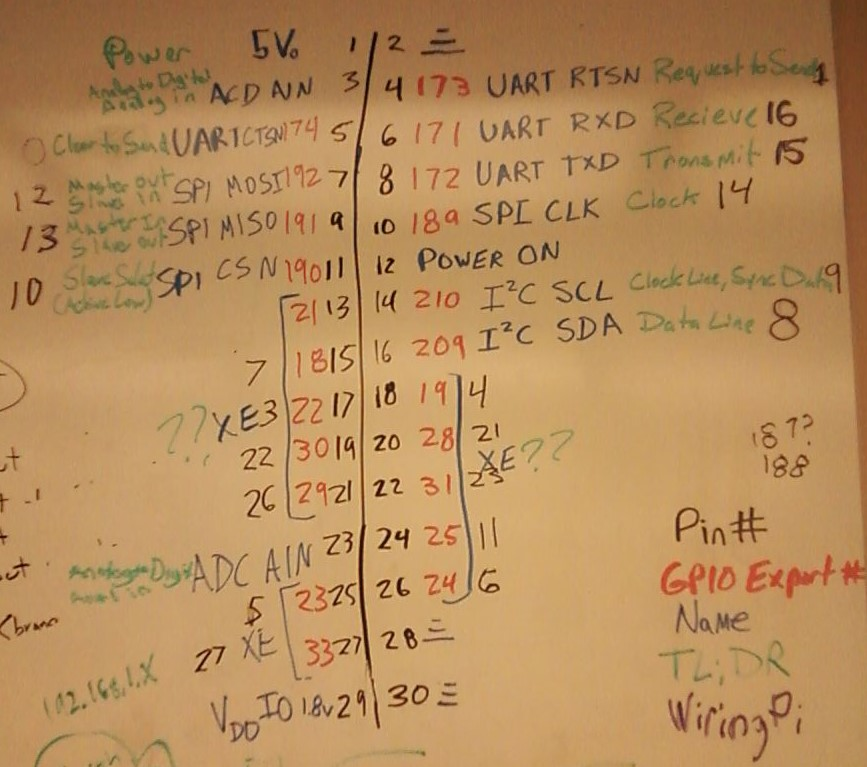 Power 5V 1 2
Analog to Digital Analog in ACD AIN 3 4 173 UART RTSN Request to Send 1
0 Clear to Send UART CTSN 174 5 6 171 UART RXD Recieve 16
12 Master out Slave in SPI MOSI 192 7 8 172 UART TXD Transmit 15
13 Master In Slave out SPI MISO 191 9 10 189 SPI CLK Clock 14
10 Slave Select (Active Low) SPI CSN 190 11 12 POWER ON
21 13 14 210 I²C SCL Clock Line, Sync Data 9
7 18 15 16 209 I²C SDA Data Line 8
?? XE3 22 17 18 19 4
22 30 19 20 28 21
XE ??
26 29 21 22 31 23
187?
188
ADC AIN 23 24 25 11
5 23 25 26 24 6
27 XE 33 27 28
192.168.1.X
VDD IO 1.8v 29 30
Pin#
GPIO Export #
Name
TL;DR
WiringPi